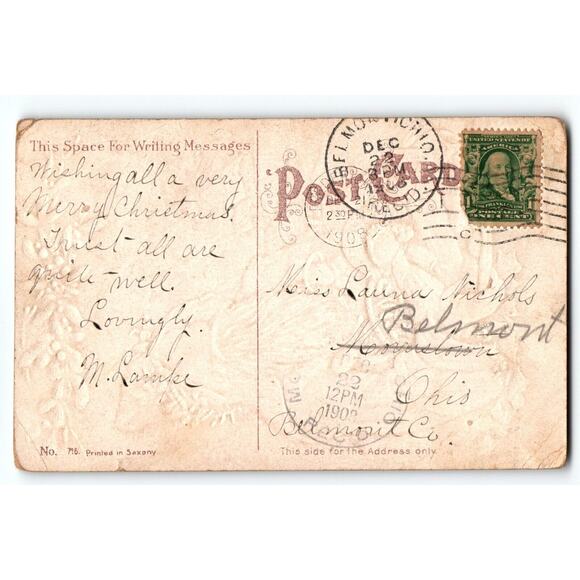 This Space For Writing Messages
Wishing all a very
Merry Christmas.
Trust all are
quite well.
Lovingly.
M. Lamke
No. 716. Printed in Saxony
POST CARD
BELMONT, OHIO
DEC
22
3 PM
1908
REC'D.
21
2 30 PM
1908
UNITED STATES OF
AMERICA
1
FRANKLIN
POSTAGE
ONE CENT
Miss Launa Nichols
Belmont
Morristown
Ohio
Belmont Co.
22
12PM
1908
REC'D
This side for the Address only.